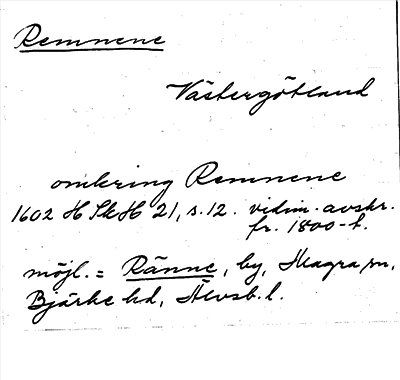 Remnene
Västergötland
omkring Remnene
1602 H Sk H 21, s. 12. vidim. avskr.
fr. 1800-t.
möjl. = Ränne, by, Magra sn,
Bjärke hd, Älvsb. l.